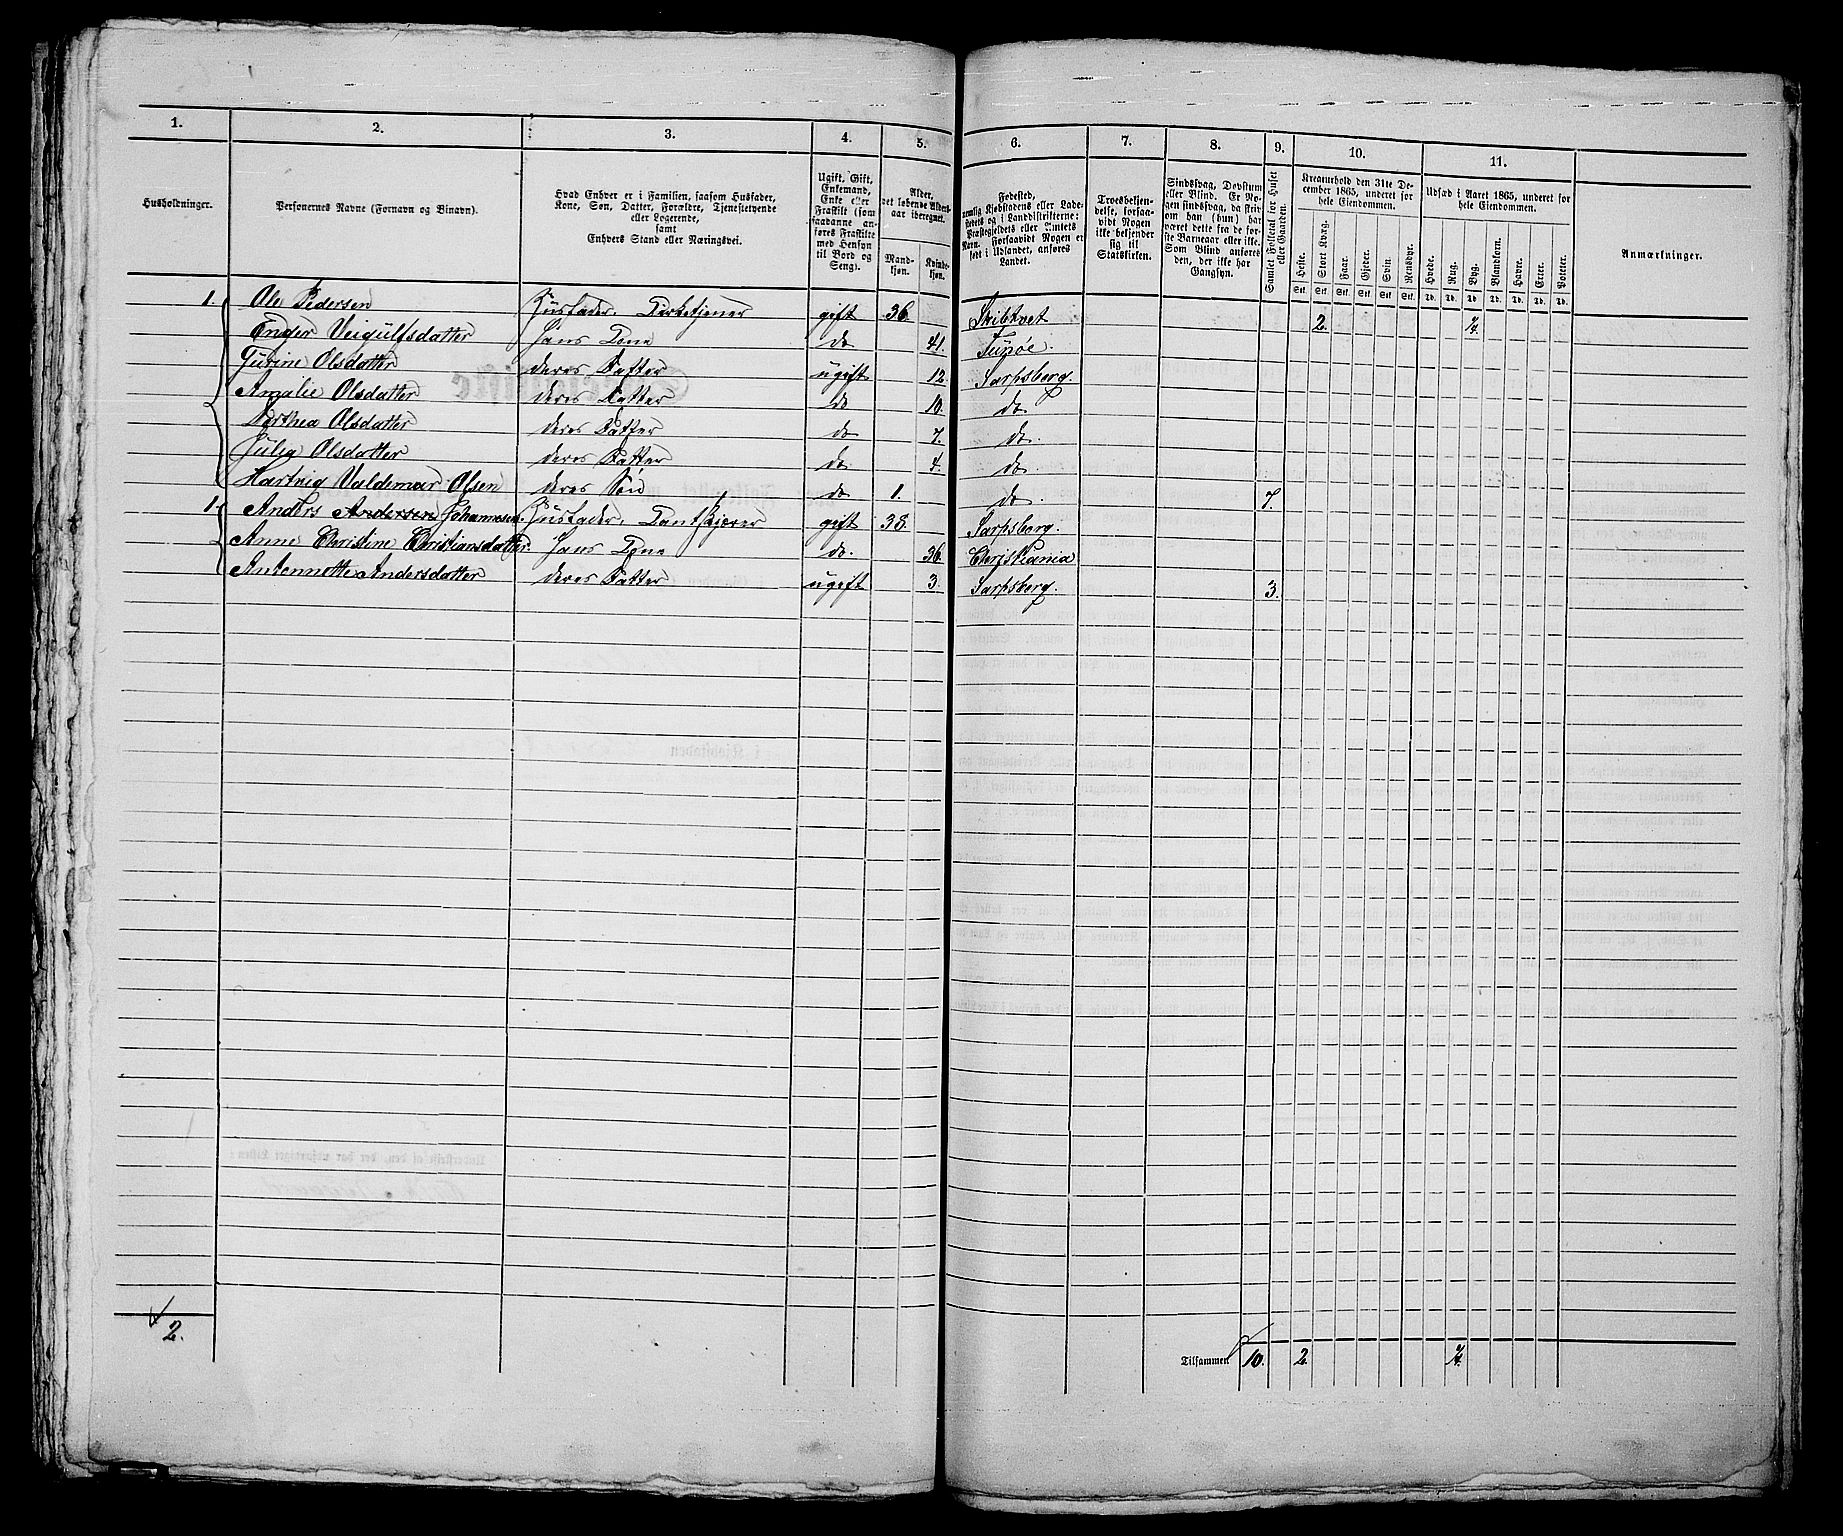 1. 2. 3. 4. 5. 6. 7. 8. 9. 10. 11.
Husholdninger.
Personernes Navne (Fornavn og Binavn).
Hvad Enhver er i Familien, saasom Husfader,
Kone, Søn, Datter, Forældre, Tjenestetyende
eller Logerende,
samt
Enhvers Stand eller Næringsvei.
Ugift, Gift,
Enkemand,
Enke eller
Fraskilt (som
saadanne an-
føres Fraskilte
med Hensyn
til Bord og
Seng).
Alder,
det løbende Alders-
aar iberegnet.
Mand-
kjøn.
Kvinde-
kjøn.
Fødested,
nemlig Kjøbstadens eller Lade-
stedets og i Landdistrikterne:
Præstegjeldets eller Amtets
Navn. Forsaavidt Nogen er
født i Udlandet, anføres
Landet.
Troesbekjen-
delse, forsaa-
vidt Nogen
ikke bekjender
sig til
Statskirken.
Sindssvag, Døvstum
eller Blind. Er No-
gen sindssvag, da skriv
om han (hun) har
været dette fra de før-
ste Barneaar eller ikke.
Som Blind anføres
den, der ikke har
Gangsyn.
Samlet Folketal for Huset
eller Gaarden.
Kreaturhold den 31te De-
cember 1865, underet for
hele Eiendommen.
Heste. Stort Kvæg. Faar. Gjeder. Svin. Rensdyr.
Stk. Stk. Stk. Stk. Stk. Stk.
Udsæd i Aaret 1865, underet for
hele Eiendommen.
Hvede. Rug. Byg. Blandkorn. Havre. Erter. Poteter.
Td. Td. Td. Td. Td. Td. Td.
Anmærkninger.
1. Ole Pedersen Husfader. Kirketjener gift 36. Skibtvet 2.
Enger Veigulfsdatter Hans Kone do 41. Tunøe.
Gurine Olsdatter deres Datter ugift 12. Sarpsborg.
Amalie Olsdatter deres Datter do 10. do
Dorthea Olsdatter deres Datter do 7. do.
Julia Olsdatter deres Datter do. 4. do.
Hartvig Valdemar Olsen deres Søn do 1. do. 7.
1. Anders Andersen Johannesen. Husfader. gift 38. Sarpsborg.
Anne Christine Christiansdatter. Hans Kone do. 36. Christiania
Antonnette Andersdatter deres Datter ugift 3. Sarpsborg. 3.
2.
Tilsammen 10. 2.